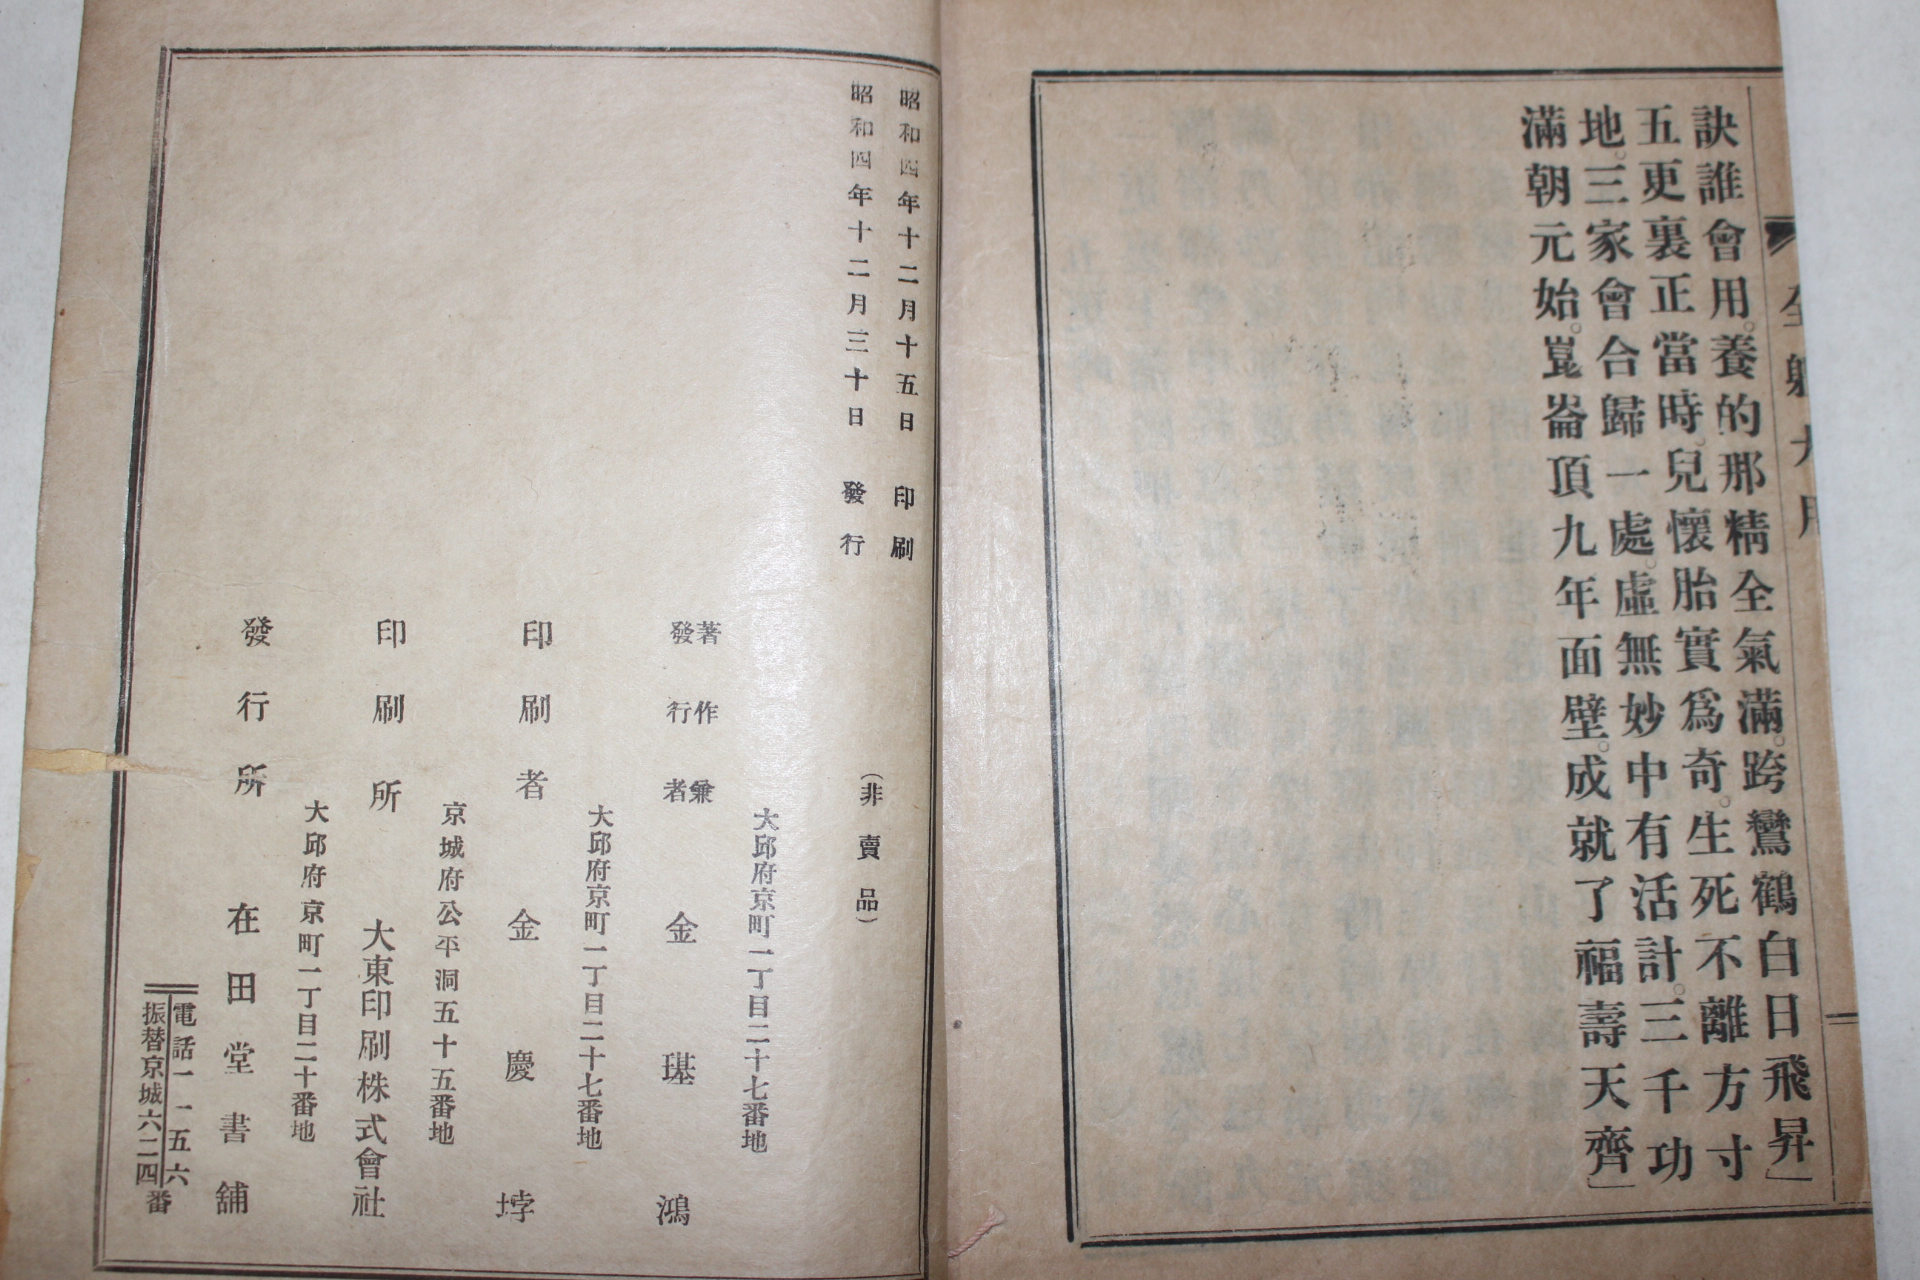 訣誰會用。養的那精全氣滿。跨鸞鶴白日飛昇」
五更裏正當時。兒懷胎實爲奇。生死不離方寸
地。三家會合歸一處。虛無妙中有活計。三千功
滿朝元始。崑崙頂九年面壁。成就了福壽天齊」
昭和四年十二月十五日 印刷
昭和四年十二月三十日 發行
(非賣品)
大邱府京町一丁目二十七番地
著作兼
發行者 金璂鴻
大邱府京町一丁目二十七番地
印刷者 金慶㙛
京城府公平洞五十五番地
印刷所 大東印刷株式會社
大邱府京町一丁目二十番地
發行所 在田堂書舖
電話一一五六
振替京城六二四番